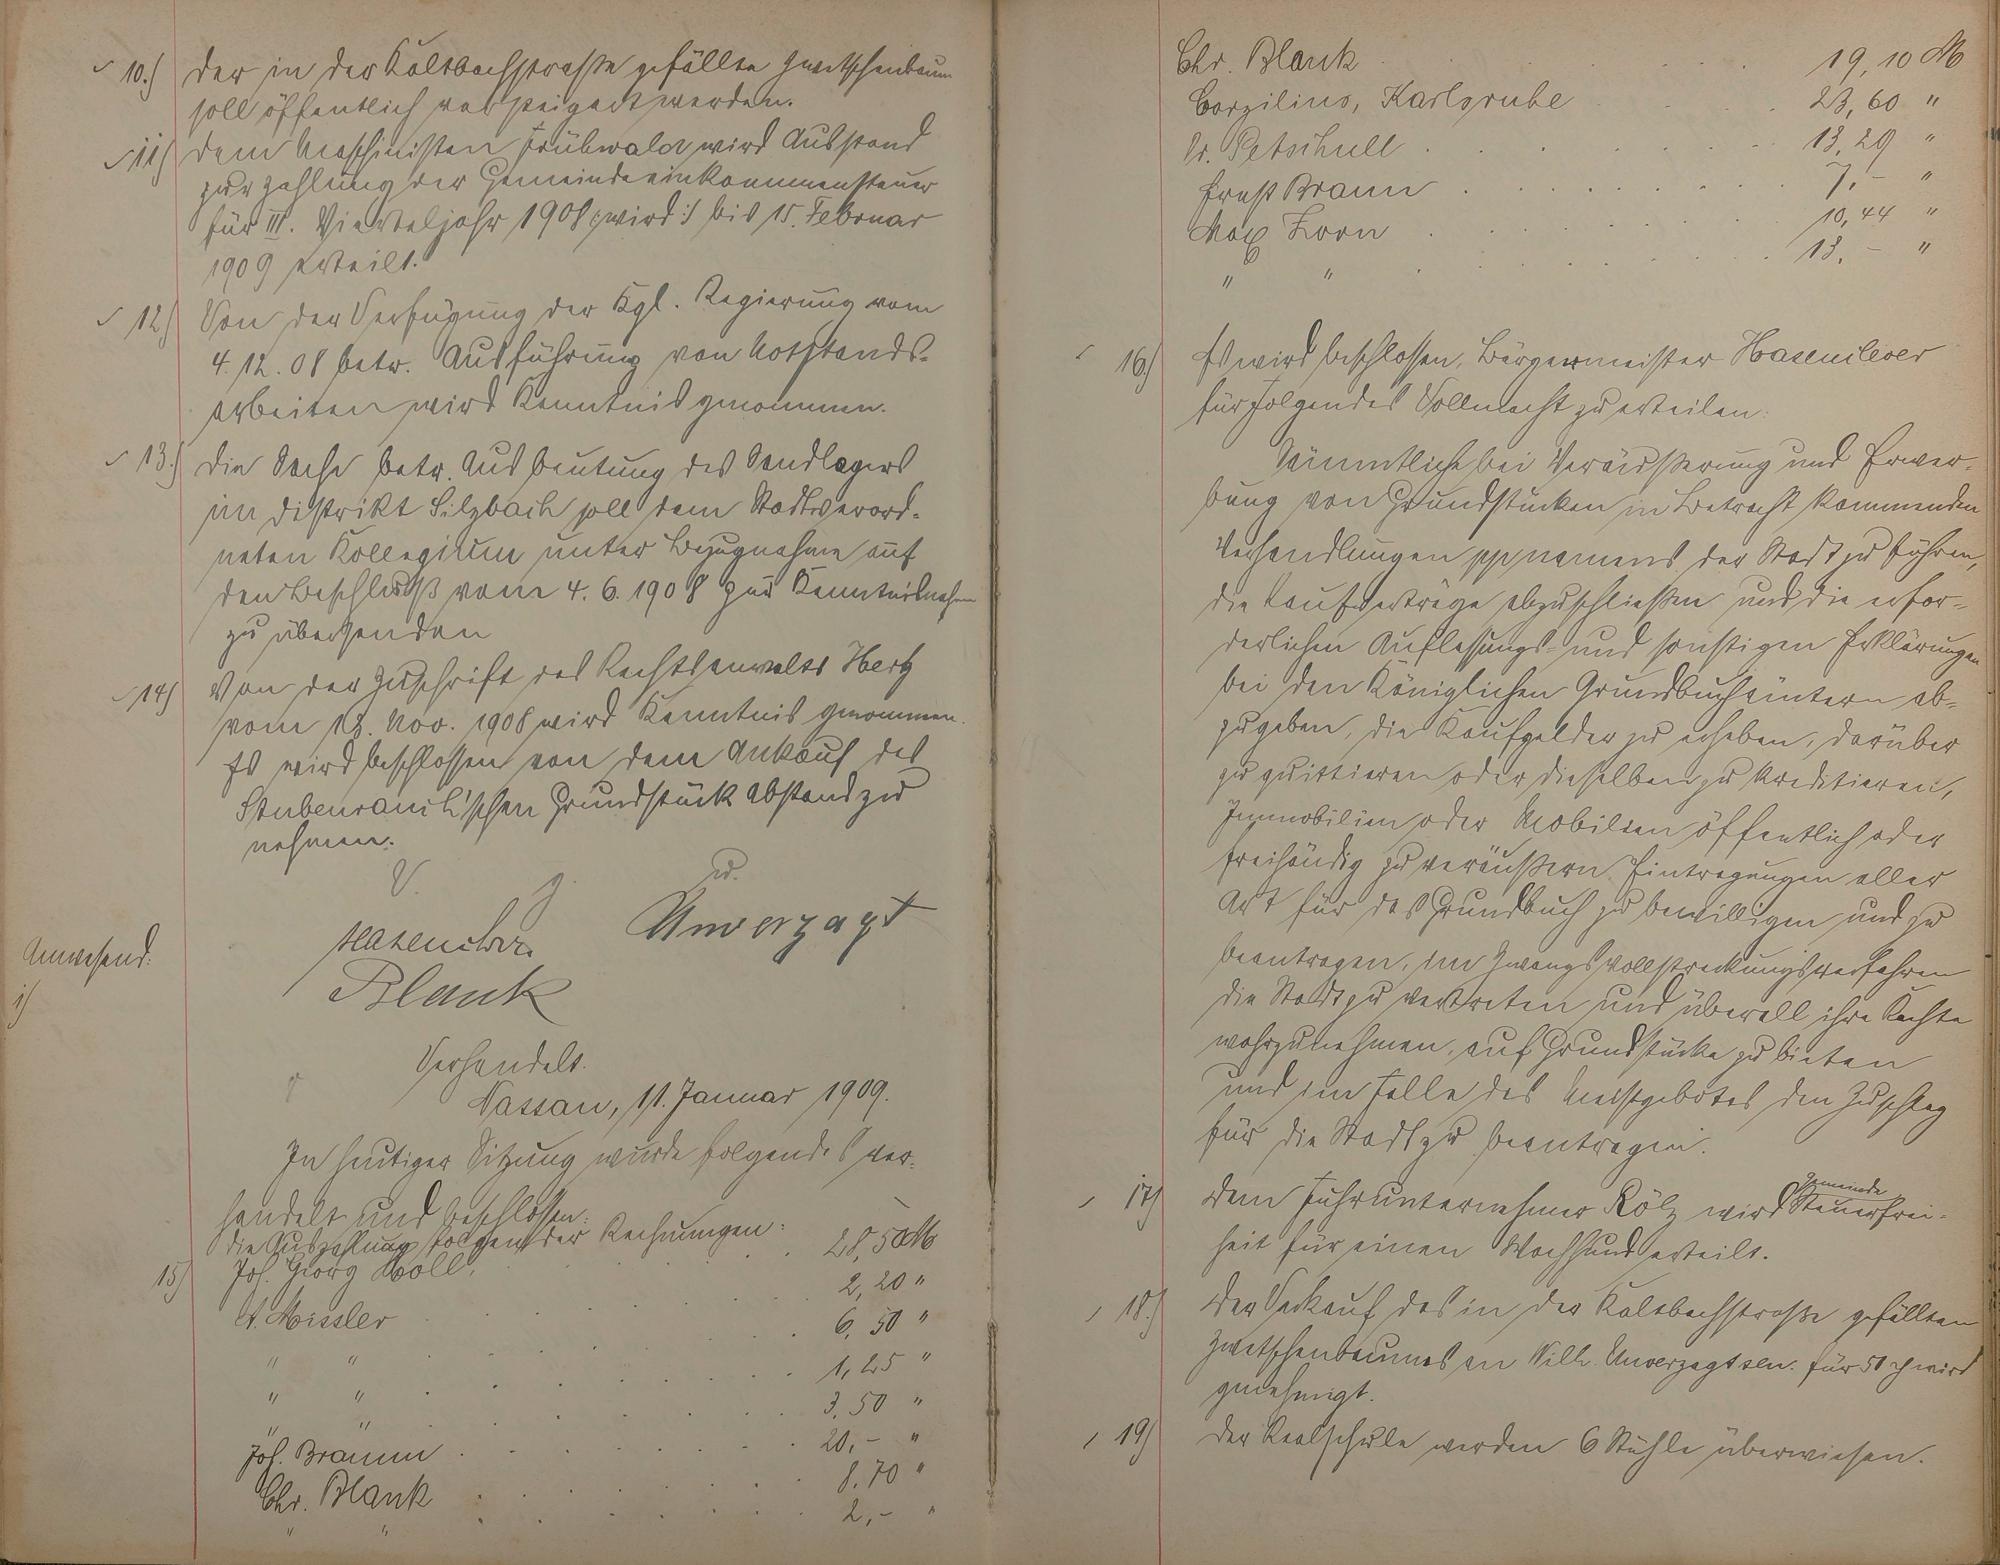 10.) Der in der Kaltbachstraße gefällte Zwetschenbaum
soll öffentlich versteigert werden.
11) Dem Maschinisten Frühwald wird Ausstand
zur Zahlung der Gemeindeeinkommensteuer
für III. Vierteljahr 1908 |: wird :| bis 15. Februar
1909 erteilt.
12) Von der Verfügung der Kgl. Regierung vom
4.12.08 betr. Ausführung von Notstands-
arbeiten wird Kenntnis genommen.
13.) Die Sache betr. Ausbeutung des Sandlagers
im Distrikt Silzbach soll dem Stadtverord-
neten Kollegium unter Bezugnahme auf
den Beschluß vom 4.6.1908 zur Kenntnisnahme
zu übersenden
14) Von der Zuschrift des Rechtsanwalts Hertz
vom 13. Nov. 1908 wird Kenntnis genommen.
Es wird beschlossen von dem Ankauf des
Stubenrauch'schen Grundstück Abstand zu
nehmen.
V. g. u.
Hasenclever. Unverzagt
Blank
Anwesend:
1)
Verhandelt.
Nassau, 11. Januar 1909.
In heutiger Sitzung wurde folgendes ver-
handelt und beschlossen:
Die Auszahlung folgender Rechnungen:
15) Joh. Georg Holl. 28,50 M
A. Missler 2,20 "
" " 6,50 "
" " 1,25 "
" " 3,50 "
Joh. Braun 20,- "
Chr. Blank 8,70 "
" " 2,- "
Chr. Blank 19,10 M
Corzilius, Karlsgrube 23,60 "
W. Petschull 13,29 "
Ernst Braun 7,- "
Max Zorn 10,44 "
" " 13,- "
16) Es wird beschlossen, Bürgermeister Hasenclever
für folgendes Vollmacht zu erteilen:
Sämmtliche bei Veräußerung und Erwer-
bung von Grundstücken in Betracht kommenden
Verhandlungen pp namens der Stadt zu führen,
die Kaufverträge abzuschließen und die erfor-
derlichen Auflassungs- und sonstigen Erklärungen
bei den Königlichen Grundbuchämtern ab-
zugeben, die Kaufgelder zu erheben, darüber
zu quittieren oder dieselben zu kreditieren,
Immobilien oder Mobilien öffentlich oder
freihändig zu veräußern Eintragungen aller
Art für das Grundbuch zu bewilligen und zu
beantragen, im Zwangsvollstreckungsverfahren
die Stadt zu vertreten und überall ihre Rechte
wahrzunehmen, auf Grundstücke zu bieten
und im Falle des Meistgebotes den Zuschlag
für die Stadt zu beantragen.
17) Dem Fuhrunternehmer Rölz wird Gemeinde Steuerfrei-
heit für einen Wachhund erteilt.
18.) Der Verkauf des in der Kaltbachstraße gefällten
Zwetschenbaumes an Wilh. Unverzagt sen. für 50 ₰ wird
genehmigt.
19) Der Realschule werden 6 Stühle überwiesen.